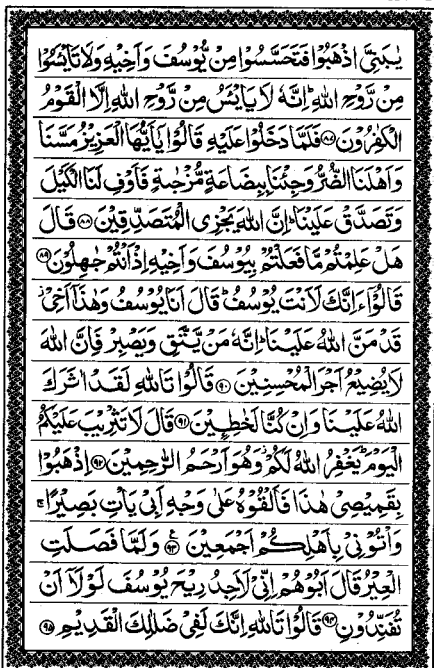 يٰبَنِىَّ اذْهَبُوْا فَتَحَسَّسُوْا مِنْ يُّوْسُفَ وَاَخِيْهِ وَلَا تَايْـَٔسُوْا
مِنْ رَّوْحِ اللّٰهِ ؕ اِنَّهٗ لَا يَايْـَٔسُ مِنْ رَّوْحِ اللّٰهِ اِلَّا الْقَوْمُ
الْكٰفِرُوْنَ ﴿۸۷﴾ فَلَمَّا دَخَلُوْا عَلَيْهِ قَالُوْا يٰۤاَيُّهَا الْعَزِيْزُ مَسَّنَا
وَاَهْلَنَا الضُّرُّ وَجِئْنَا بِبِضَاعَةٍ مُّزْجٰىةٍ فَاَوْفِ لَنَا الْكَيْلَ
وَتَصَدَّقْ عَلَيْنَا ؕ اِنَّ اللّٰهَ يَجْزِى الْمُتَصَدِّقِيْنَ ﴿۸۸﴾ قَالَ
هَلْ عَلِمْتُمْ مَّا فَعَلْتُمْ بِيُوْسُفَ وَاَخِيْهِ اِذْ اَنْتُمْ جٰهِلُوْنَ ﴿۸۹﴾
قَالُوْۤا ءَاِنَّكَ لَاَنْتَ يُوْسُفُ ؕ قَالَ اَنَا يُوْسُفُ وَهٰذَاۤ اَخِىْ
قَدْ مَنَّ اللّٰهُ عَلَيْنَا ؕ اِنَّهٗ مَنْ يَّتَّقِ وَيَصْبِرْ فَاِنَّ اللّٰهَ
لَا يُضِيْعُ اَجْرَ الْمُحْسِنِيْنَ ﴿۹۰﴾ قَالُوْا تَاللّٰهِ لَقَدْ اٰثَرَكَ
اللّٰهُ عَلَيْنَا وَاِنْ كُنَّا لَخٰطِـِٕيْنَ ﴿۹۱﴾ قَالَ لَا تَثْرِيْبَ عَلَيْكُمُ
الْيَوْمَ ؕ يَغْفِرُ اللّٰهُ لَكُمْ وَهُوَ اَرْحَمُ الرّٰحِمِيْنَ ﴿۹۲﴾ اِذْهَبُوْا
بِقَمِيْصِىْ هٰذَا فَاَلْقُوْهُ عَلٰى وَجْهِ اَبِىْ يَاْتِ بَصِيْرًا ۚ
وَاْتُوْنِىْ بِاَهْلِكُمْ اَجْمَعِيْنَ ﴿۹۳﴾ وَلَمَّا فَصَلَتِ
الْعِيْرُ قَالَ اَبُوْهُمْ اِنِّىْ لَاَجِدُ رِيْحَ يُوْسُفَ لَوْلَاۤ اَنْ
تُفَنِّدُوْنِ ﴿۹۴﴾ قَالُوْا تَاللّٰهِ اِنَّكَ لَفِىْ ضَلٰلِكَ الْقَدِيْمِ ﴿۹۵﴾